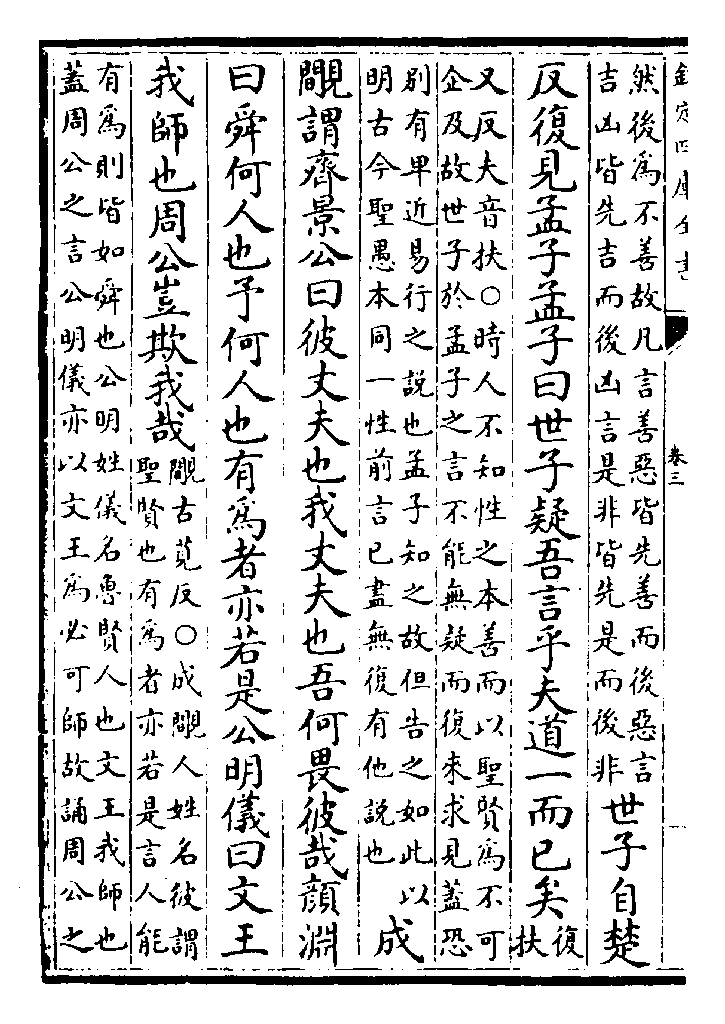 欽定四庫全書
卷三
然後爲不善故凡言善惡皆先善而後惡言
吉凶皆先吉而後凶言是非皆先是而後非
世子自楚
反復見孟子孟子曰世子疑吾言乎夫道一而已矣
復
扶
又反夫音扶○時人不知性之本善而以聖賢爲不可
企及故世子於孟子之言不能無疑而復來求見蓋恐
别有卑近易行之說也孟子知之故但告之如此以
明古今聖愚本同一性前言已盡無復有他說也
成
覵謂齊景公曰彼丈夫也我丈夫也吾何畏彼哉顔淵
曰舜何人也予何人也有爲者亦若是公明儀曰文王
我師也周公豈欺我哉
覵古莧反○成覵人姓名彼謂
聖賢也有爲者亦若是言人能
有爲則皆如舜也公明姓儀名魯賢人也文王我師也
蓋周公之言公明儀亦以文王爲必可師故誦周公之